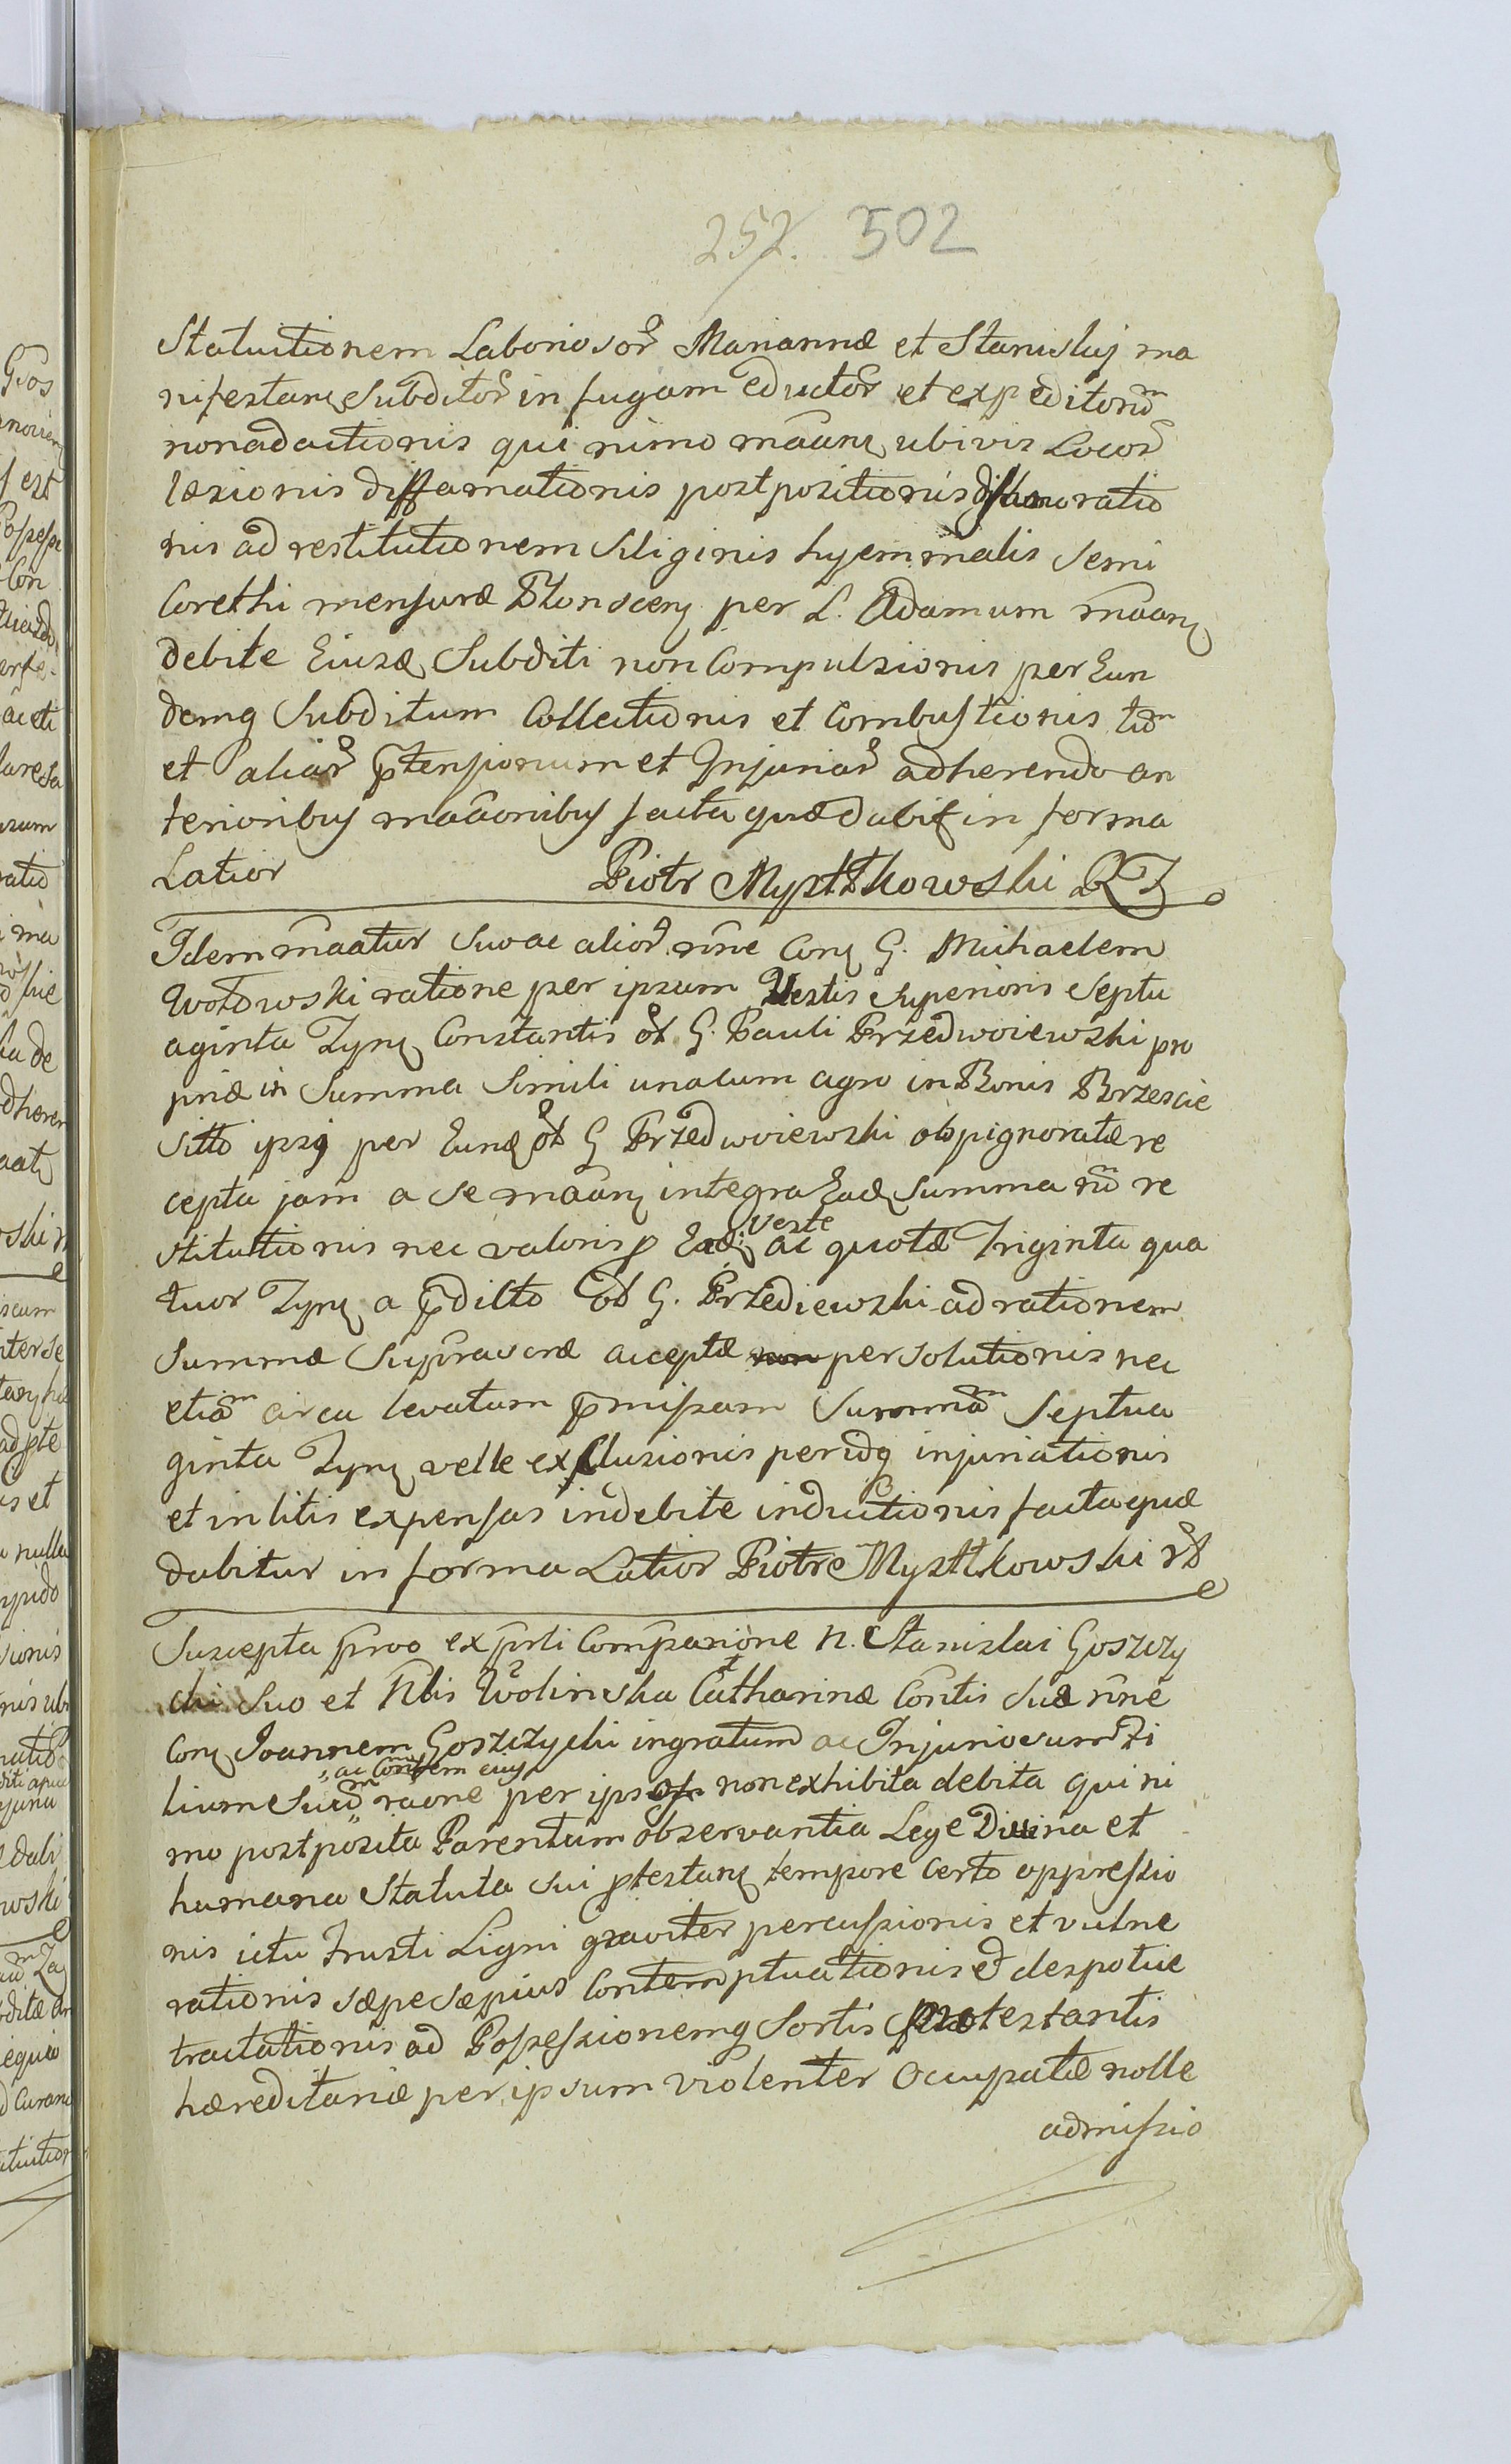 252. 502
Statuitionem Laboriosor Mariannæ et Stanislaj ma
nifestanę Subditor in fugam eductor et expeditorum
nonadactionis qui nimo mãanę ubivis Locor
læsionis diffamationis postpositionis dishonoratio
nis ad restitutionem Siliginis hyemmalis Semi
Corethi mensuræ Błonscen per L. Adamum mãanę
debite Eiusd Subditi non Compulsionis per Eun
demq Subditum Collectionis et Combustionis tum
et aliar ptensionum et Injuriar adherendo an
terioribus mãaonibus facta quæ dabit in forma
Latior Piotr Mystkowski RZ
Idem mãatur suo ac alior nne Con G. Michaelem
Wołowski ratione per ipsum Vestis Superioris Septu
aginta Zyn Constantis ol G. Pauli Przedwoiewski pro
priæ in Summa Simili unacum agro in Bonis Brzescie
sitto ipsi per Eund ol G Przedwoiewski obpignoratæ re
cepta jam a se mãanę integra Ead Summa nõ re
stitutionis nec valoris p Ead Veste ac quotæ Triginta qua
tuor Zyn a pdicto ol G. Przediewski ad rationem
Summæ Suprascræ acceptæ non persolutionis nec
etiam circa levatam pmissam Summam Septua
ginta Zyn velle exclusionis per idq injuriationis
et in litis expensas indebite inductionis facta quæ
dabitur in forma Latior Piotr Mystkowski
Suscepta proo ex prti Comparione N. Stanislai Goszczy
cki Suo et Nblis Wolinska Catharinæ Contis Suæ nne
Con Joannem Goszczycki ingratum ac Injuriosum Fi
lium Suum ac Contem eius raone per ipsos non exhibita debita qui ni
mo postposita Parentum observantia Lege Divina et
humana Statuta sui ptestan tempore certo oppressio
nis ictu frusti Ligni graviter percussionis et vulne
rationis sæpe sæpius Contemptuationis et despotice
tractationis ad Possessionemq Sortis protestantis
hæreditariæ per ipsum violenter occupatæ nolle
admissio